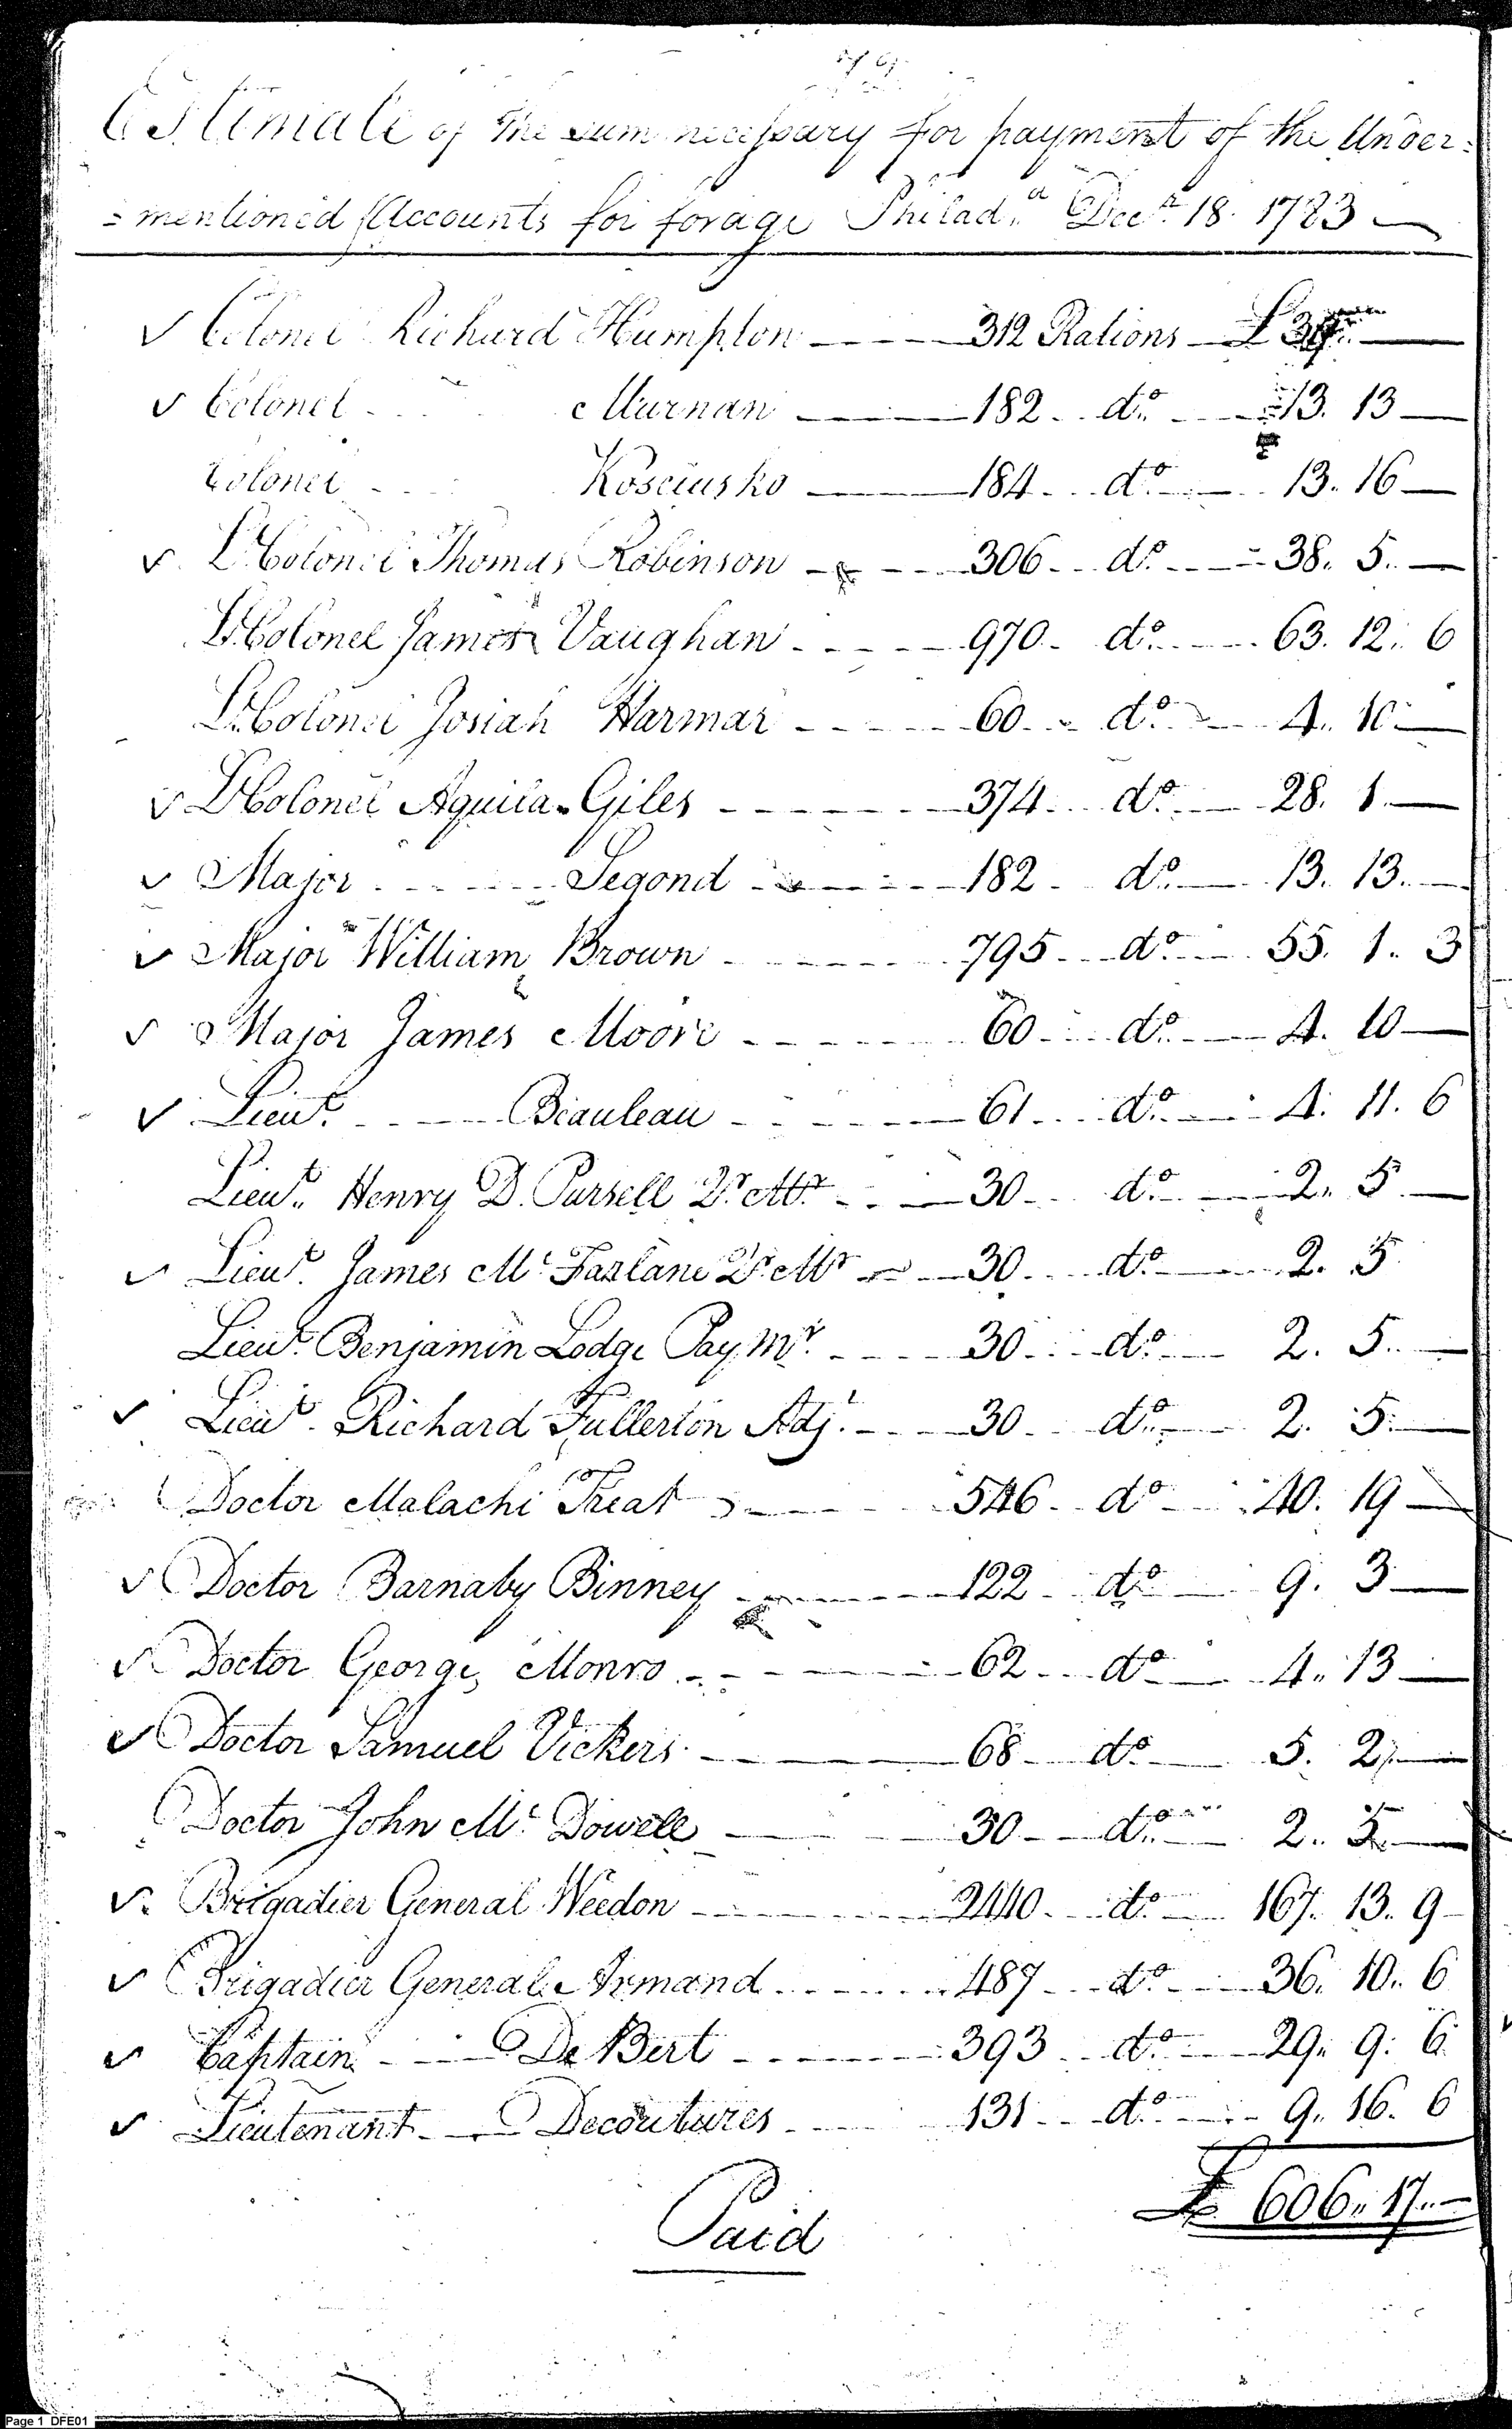 Estimate of the sum necessary for payment of the Under=
=mentioned Accounts for forage Philad.a Decr. 18. 1783 —
✓ Colonel Richard Humpton 312 Rations £ 39.. —
✓ Colonel Murnan 182 do. 13. 13 —
Colonel Kosciusko 184 do. 13. 16 —
✓ Lt Colonel Thomas Robinson 306 do. 38. 5. —
Lt Colonel James Vaughan 970 do. 63. 12. 6
Lt Colonel Josiah Harmar 60 do. 4. 10 —
✓ Lt Colonel Aquila Giles 374 do. 28. 1. —
✓ Major Segond 182 do. 13. 13. —
✓ Major William Brown 795 do. 55. 1. 3
✓ Major James Moore 60 do. 4. 10 —
✓ Lieut. Beauleau 61 do. 4. 11. 6
Lieut. Henry D. Pursell Qr. Mr. 30 do. 2. 5. —
✓ Lieut. James Mc Farlane Qr. Mr 30 do. 2. 5
Lieut. Benjamin Lodge Pay Mr. 30 do. 2. 5. —
✓ Lieut. Richard Fullerton Adjt. 30 do. 2. 5. —
Doctor Malachi Treat 546 do 40. 19 —
✓ Doctor Barnaby Binney 122 do 9. 3 —
✓ Doctor George Monro 62 do 4. 13 —
✓ Doctor Samuel Vickers 68 do 5. 2. —
Doctor John Mc Dowell 30 do. 2. 5. —
✓ Brigadier General Weedon 2440 do. 167. 13. 9
✓ Brigadier General Armand 487 do. 36. 10. 6
✓ Captain De Bert 393 do. 29. 9. 6
✓ Lieutenant Decoutures 131 do. 9. 16. 6
£ 606. 17. —
Paid
Page 1 DFE01